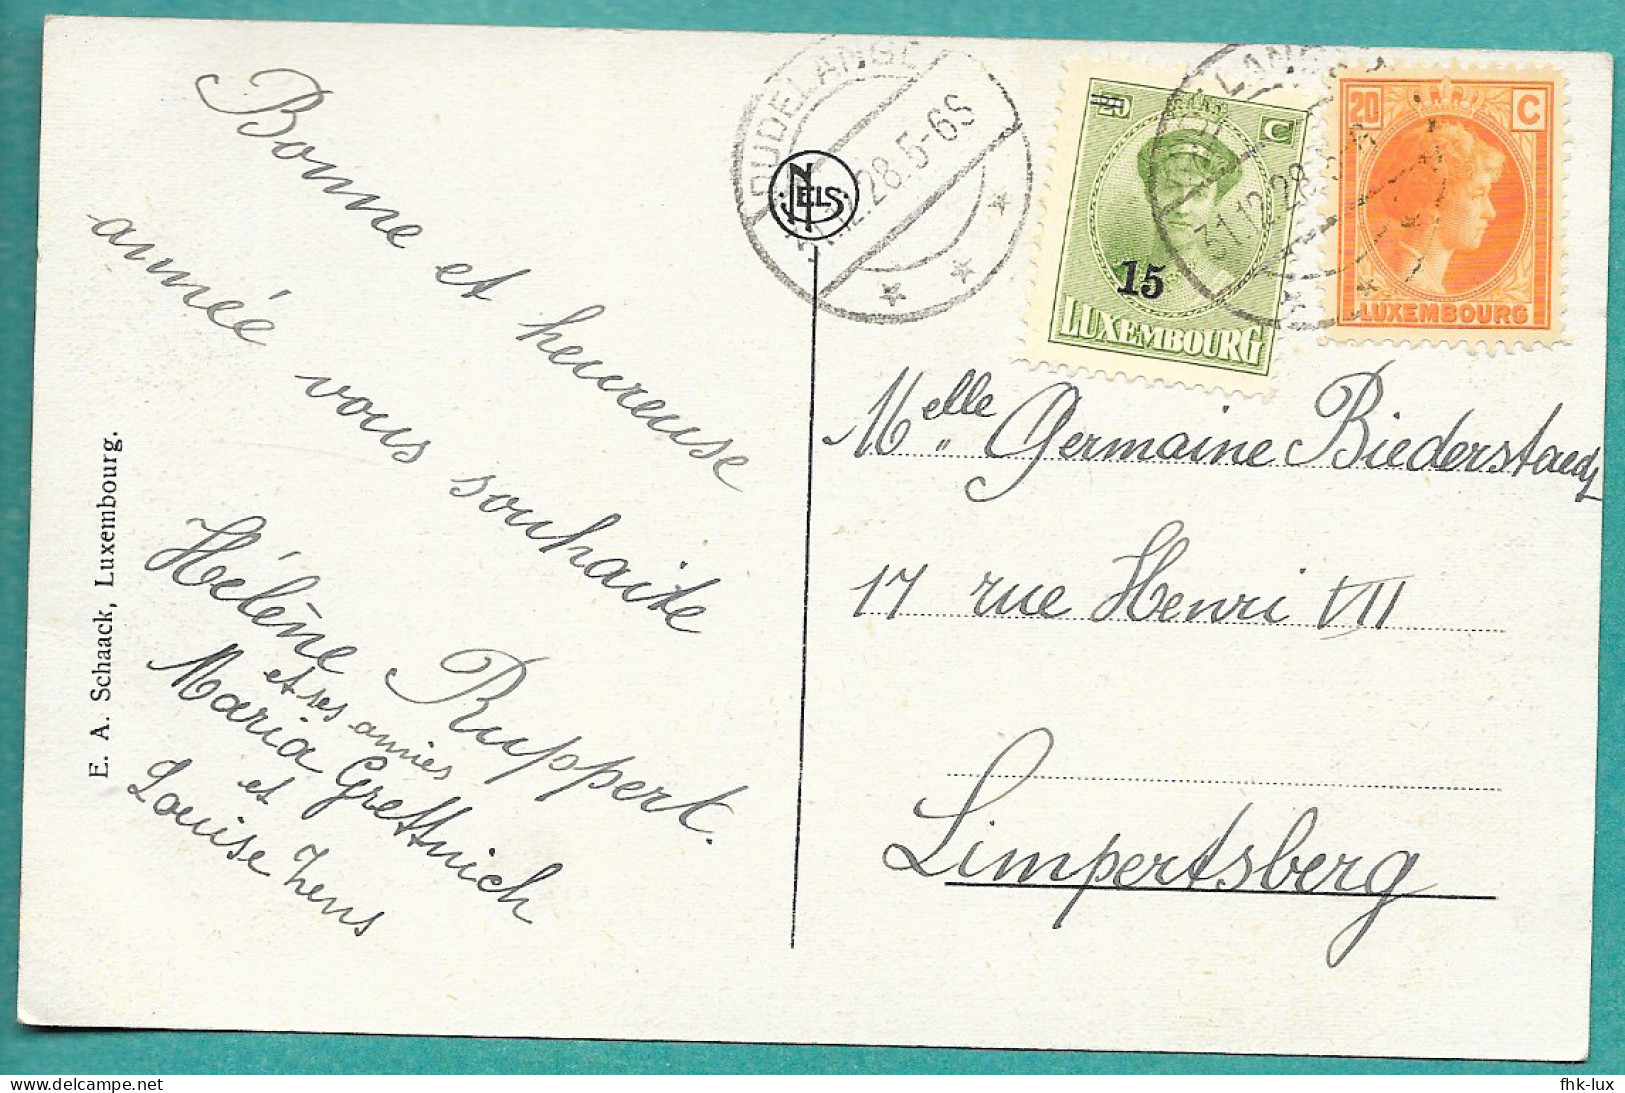 Bonne et heureuse
année vous souhaite
Hélène Ruppert.
et ses amies
Maria Grettnich
et
Louise Zens
E. A. Schaack, Luxembourg.
NELS
DUDELANGE
31.12.28.5-6S
20 C
15
LUXEMBOURG
31.12.28.5-6
20 C
LUXEMBOURG
Melle Germaine
17 rue Henri VII
Limpertsberg
fhk-lux